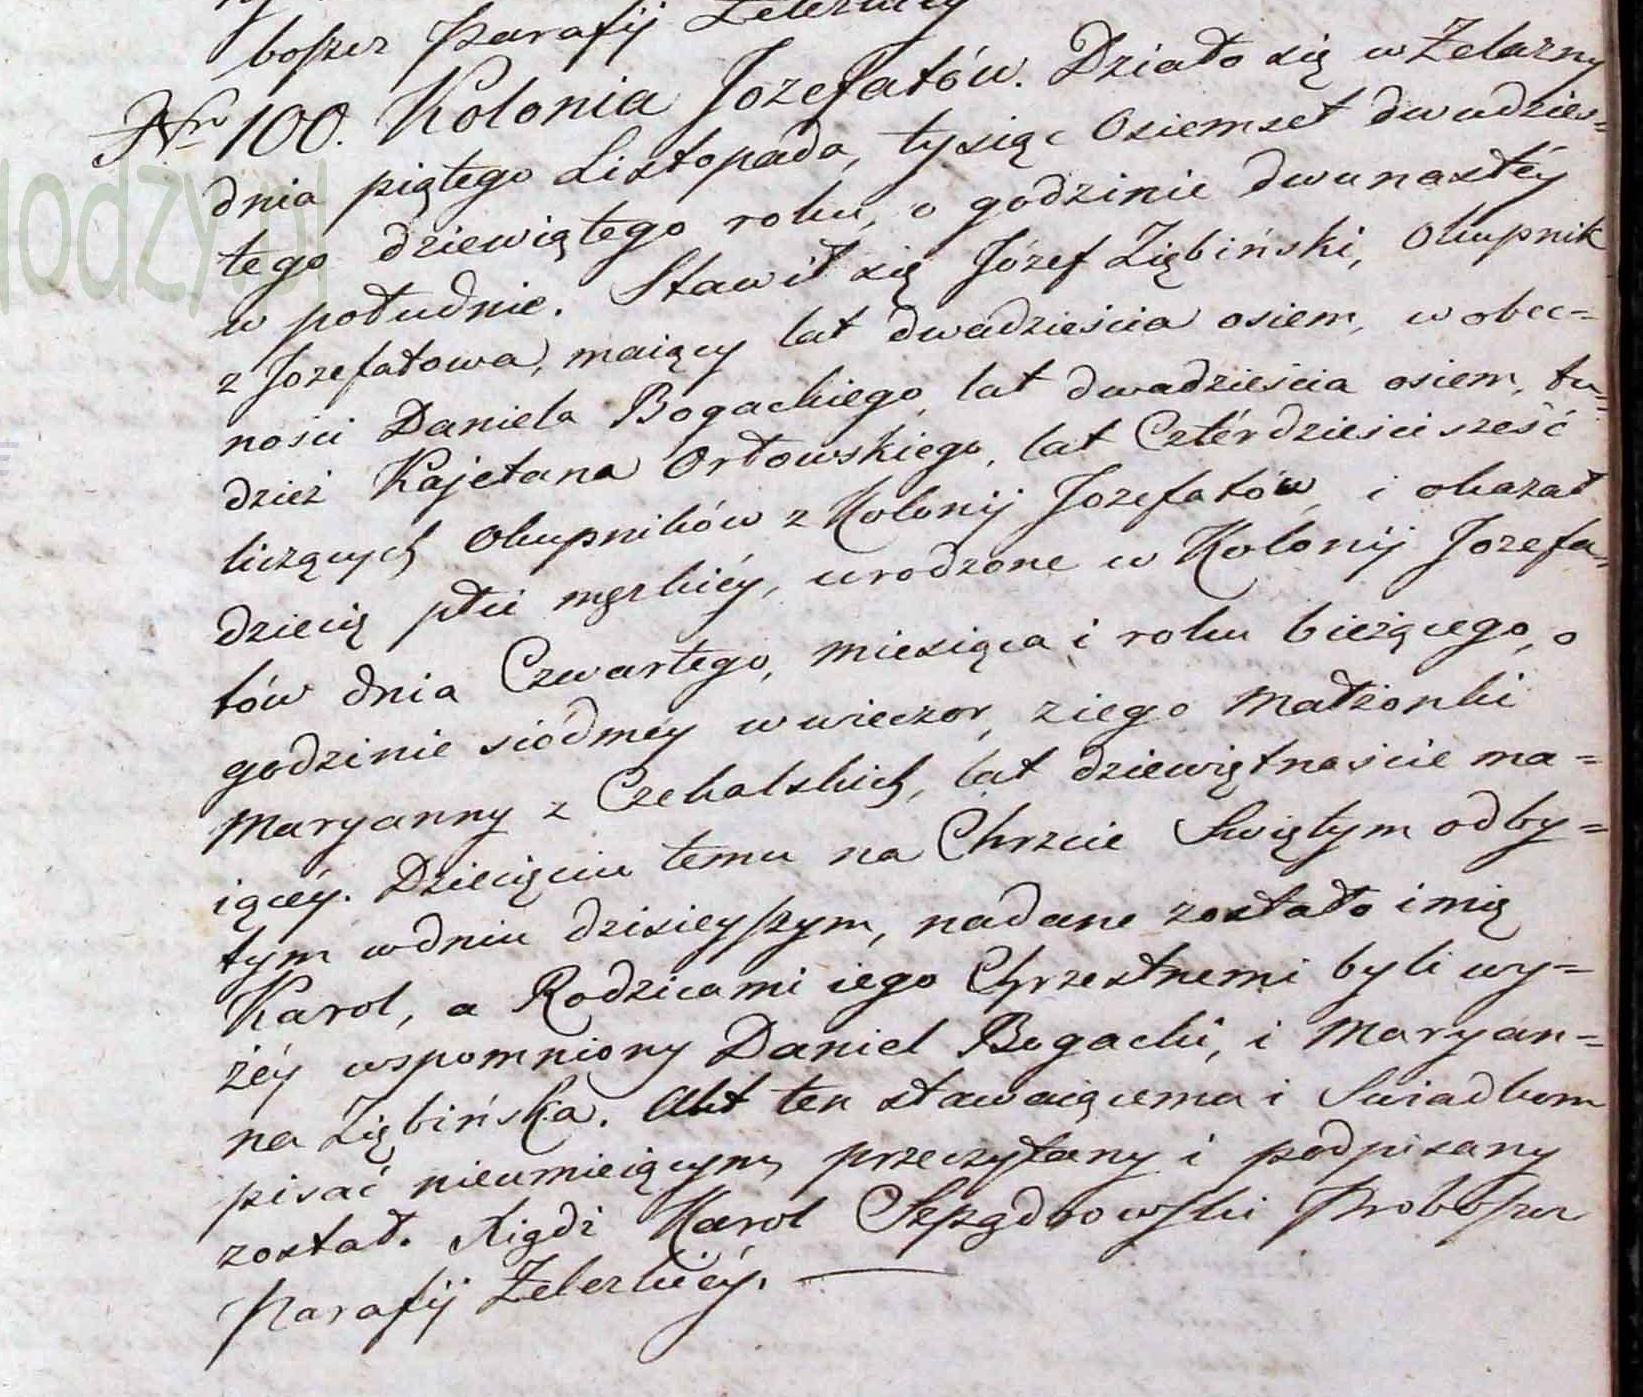 boszcz Parafij Zelezlicy
Nr 100. Kolonia Jozefatów. Działo się w Żelazny
dnia piątego Listopada, tysiąc Osiemset dwudzies=
tego dziewiątego roku, o godzinie dwunastéy
w południe. Stawił się Józef Ziębiński, Okupnik
z Jozefatowa, maiący lat dwadzieścia osiem, w obec=
ności Daniela Bogackiego, lat dwadzieścia osiem, tu=
dzież Kajetana Orłowskiego, lat Cztérdzieści sześć
liczących Okupników z Kolonij Jozefatów, i okazał
dziecię płci męzkiéy, urodzone w Kolonij Jozefa=
tów dnia Czwartego, miesiąca i roku bieżącego, o
godzinie siódméy w wieczor, z iego Małżonki
Maryanny z Czekalskich, lat dziewiętnaście ma=
iącéy. Dziecięciu temu na Chrzcie Swiętym odby=
tym w dniu dzisieyszym, nadane zostało imię
Karol, a Rodzicami iego Chrzestnemi byli wy=
żéy wspomniony Daniel Bogacki, i Maryan=
na Ziębińska. Akt ten stawaiącemu i Swiadkom
pisać nieumieiącym, przeczytany i podpisany
został. Xiądz Karol Boszcz
Parafij
lodzy.pl